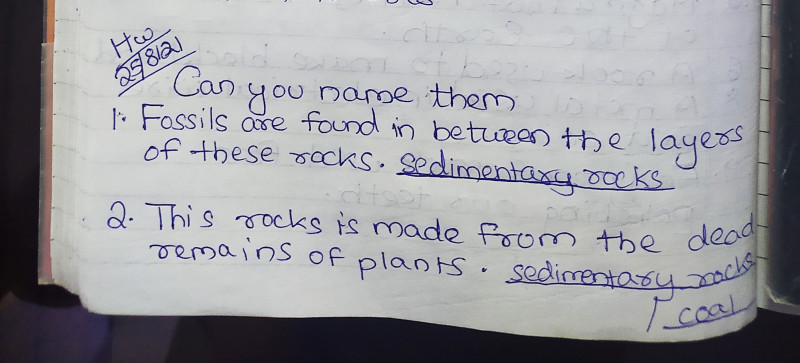 HW
25/8/21
Can you name them
1. Fossils are found in between the layers
of these rocks. sedimentary rocks
2. This rocks is made from the dead
remains of plants. sedimentary rocks
/ coal